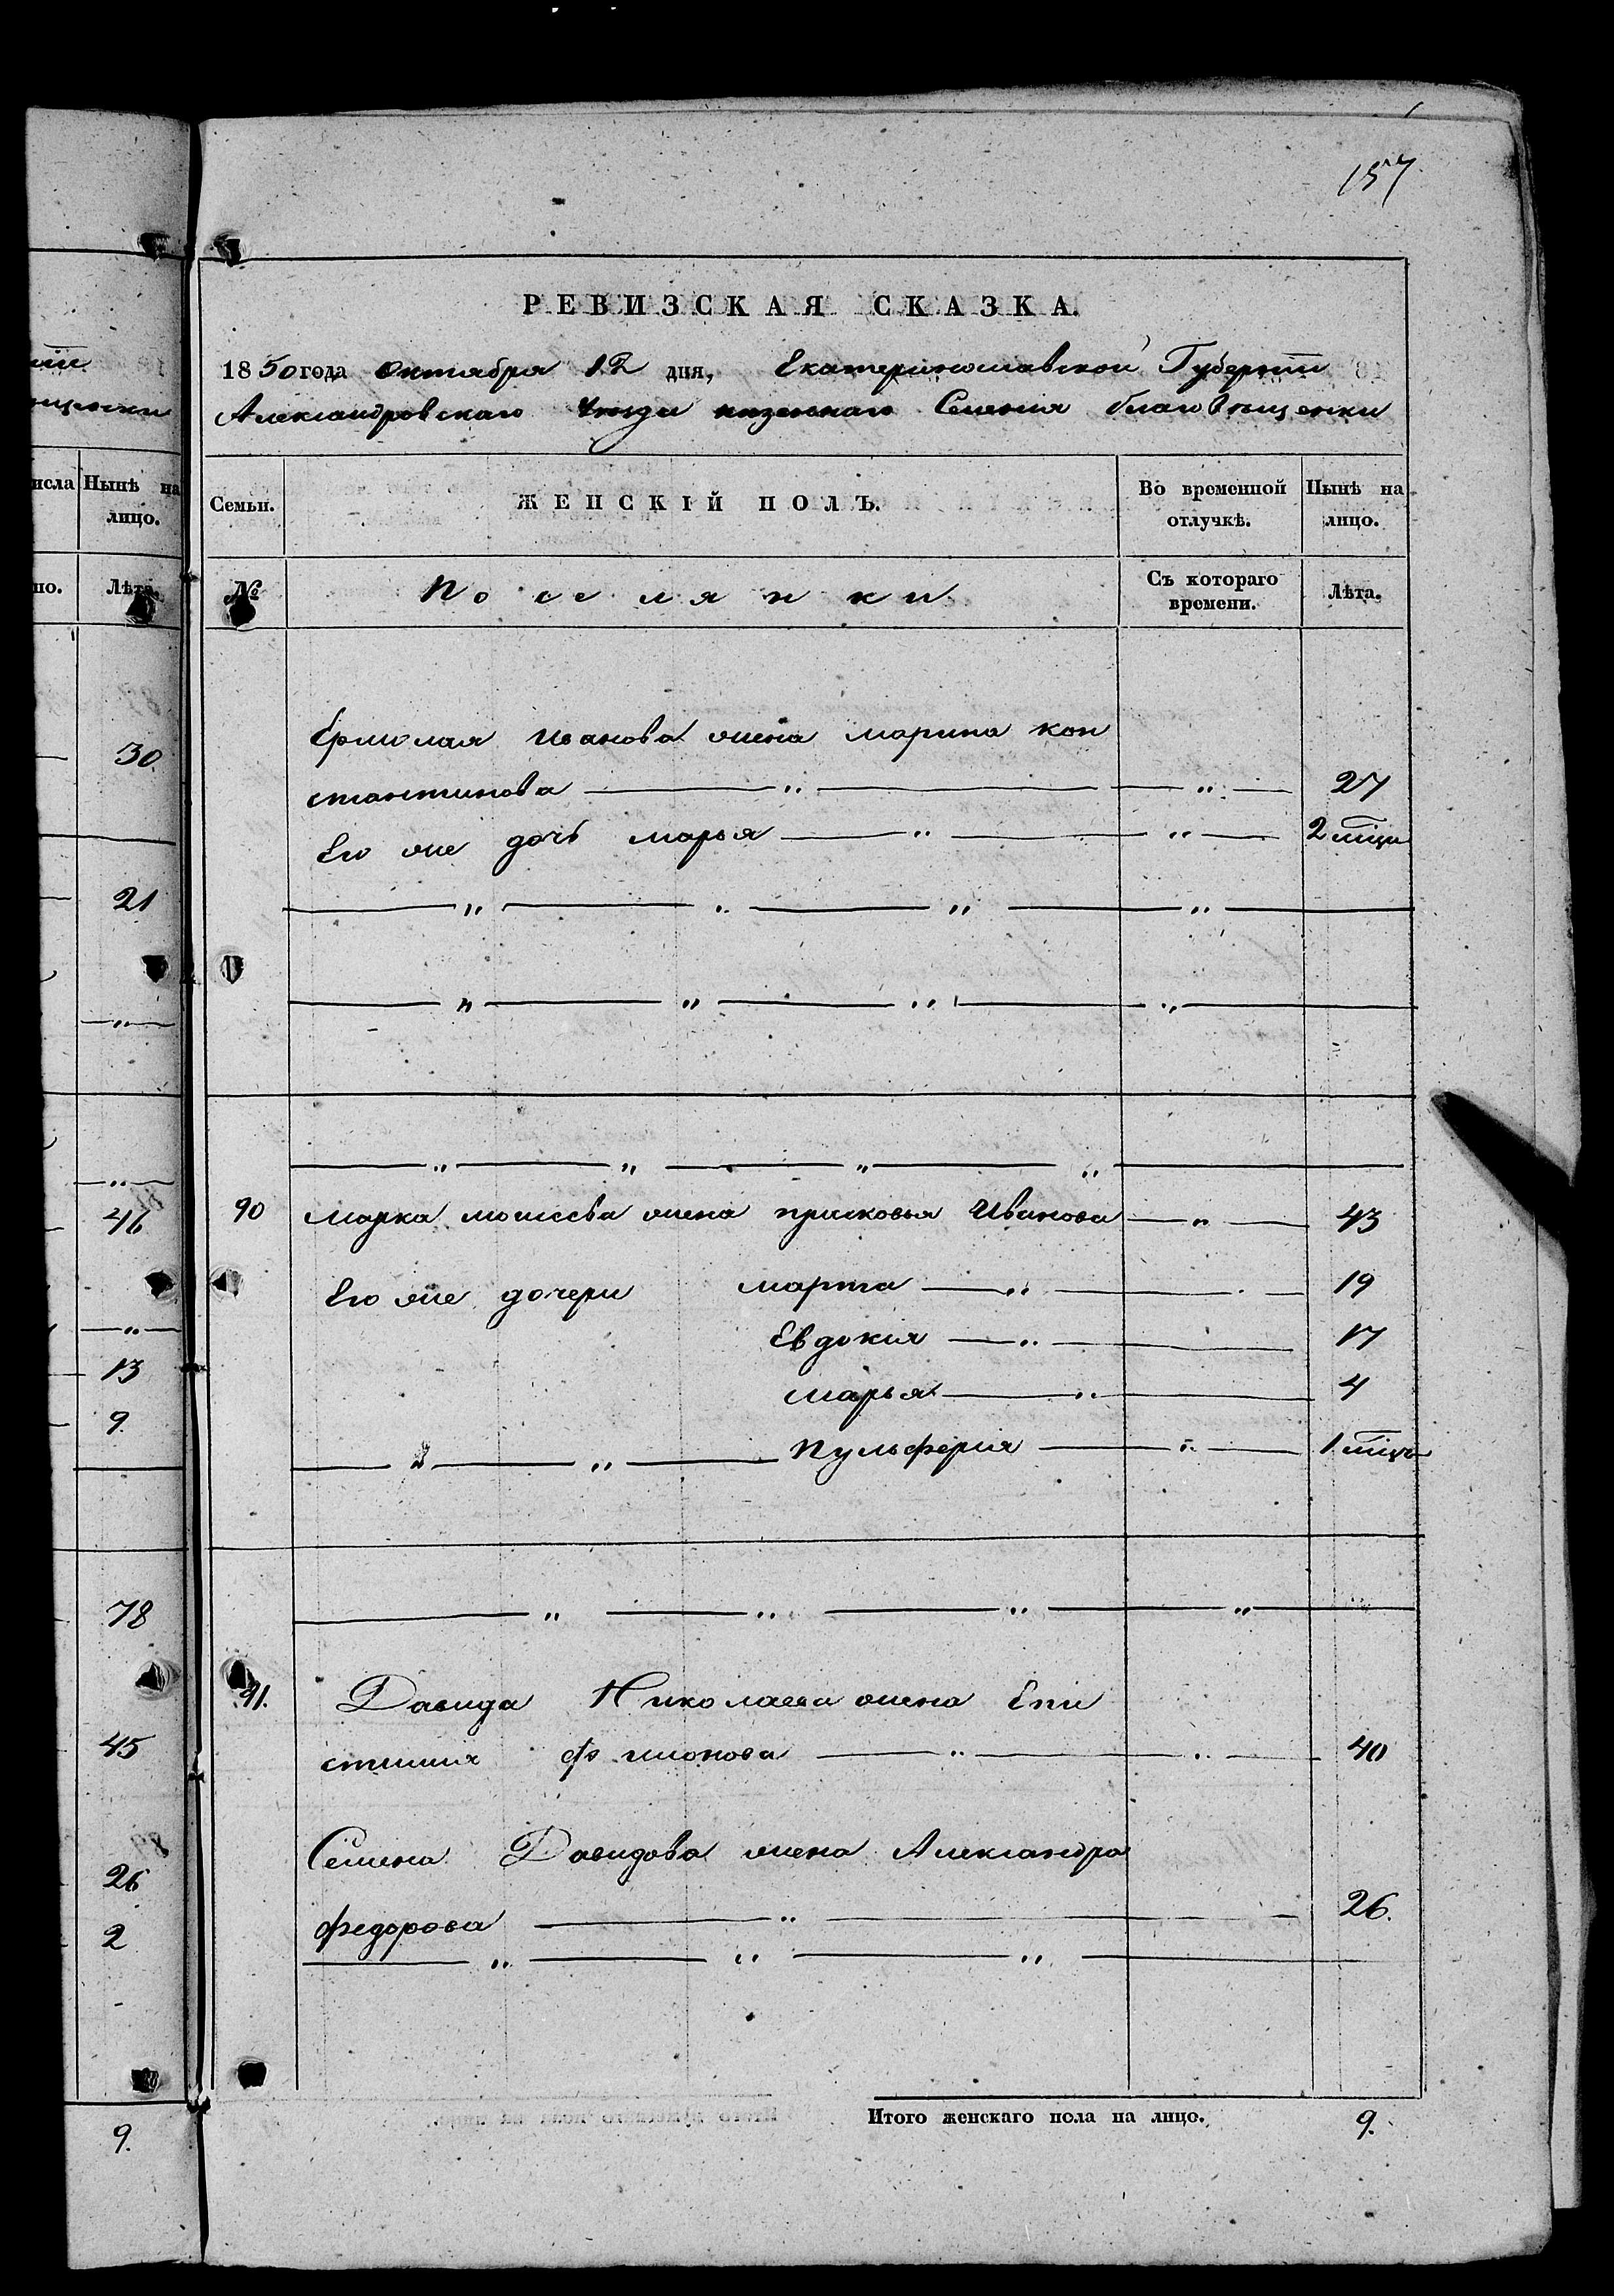 157
РЕВИЗСКАЯ СКАЗКА.
1850 года Октября 12 дня, Екатеринославской Губерніи
Александровскаго Уезда казеннаго Селенія благовещенки
Семьи.
ЖЕНСКІЙ ПОЛЪ.
Во временной отлучкѣ.
Нынѣ на лицо.
№
Поселянки
Съ котораго времени.
Лѣта.
Ермолая Иванова жена марина кон
стантинова 27
Его же дочь марья 2 міца
90 Марка моисеева жена прасковья Иванова 43
Его же дочери марта 19
Евдокія 17
марья 4
Пульферія 1 міца
91. Давида Николаева жена Епи
стимия 40
Семена Давидова жена Александра
федорова 26.
Итого женскаго пола на лицо. 9.
исла
Нынѣ на
лицо.
но.
Лѣта.
30
21
46
13
9.
78
45
26
2
9.